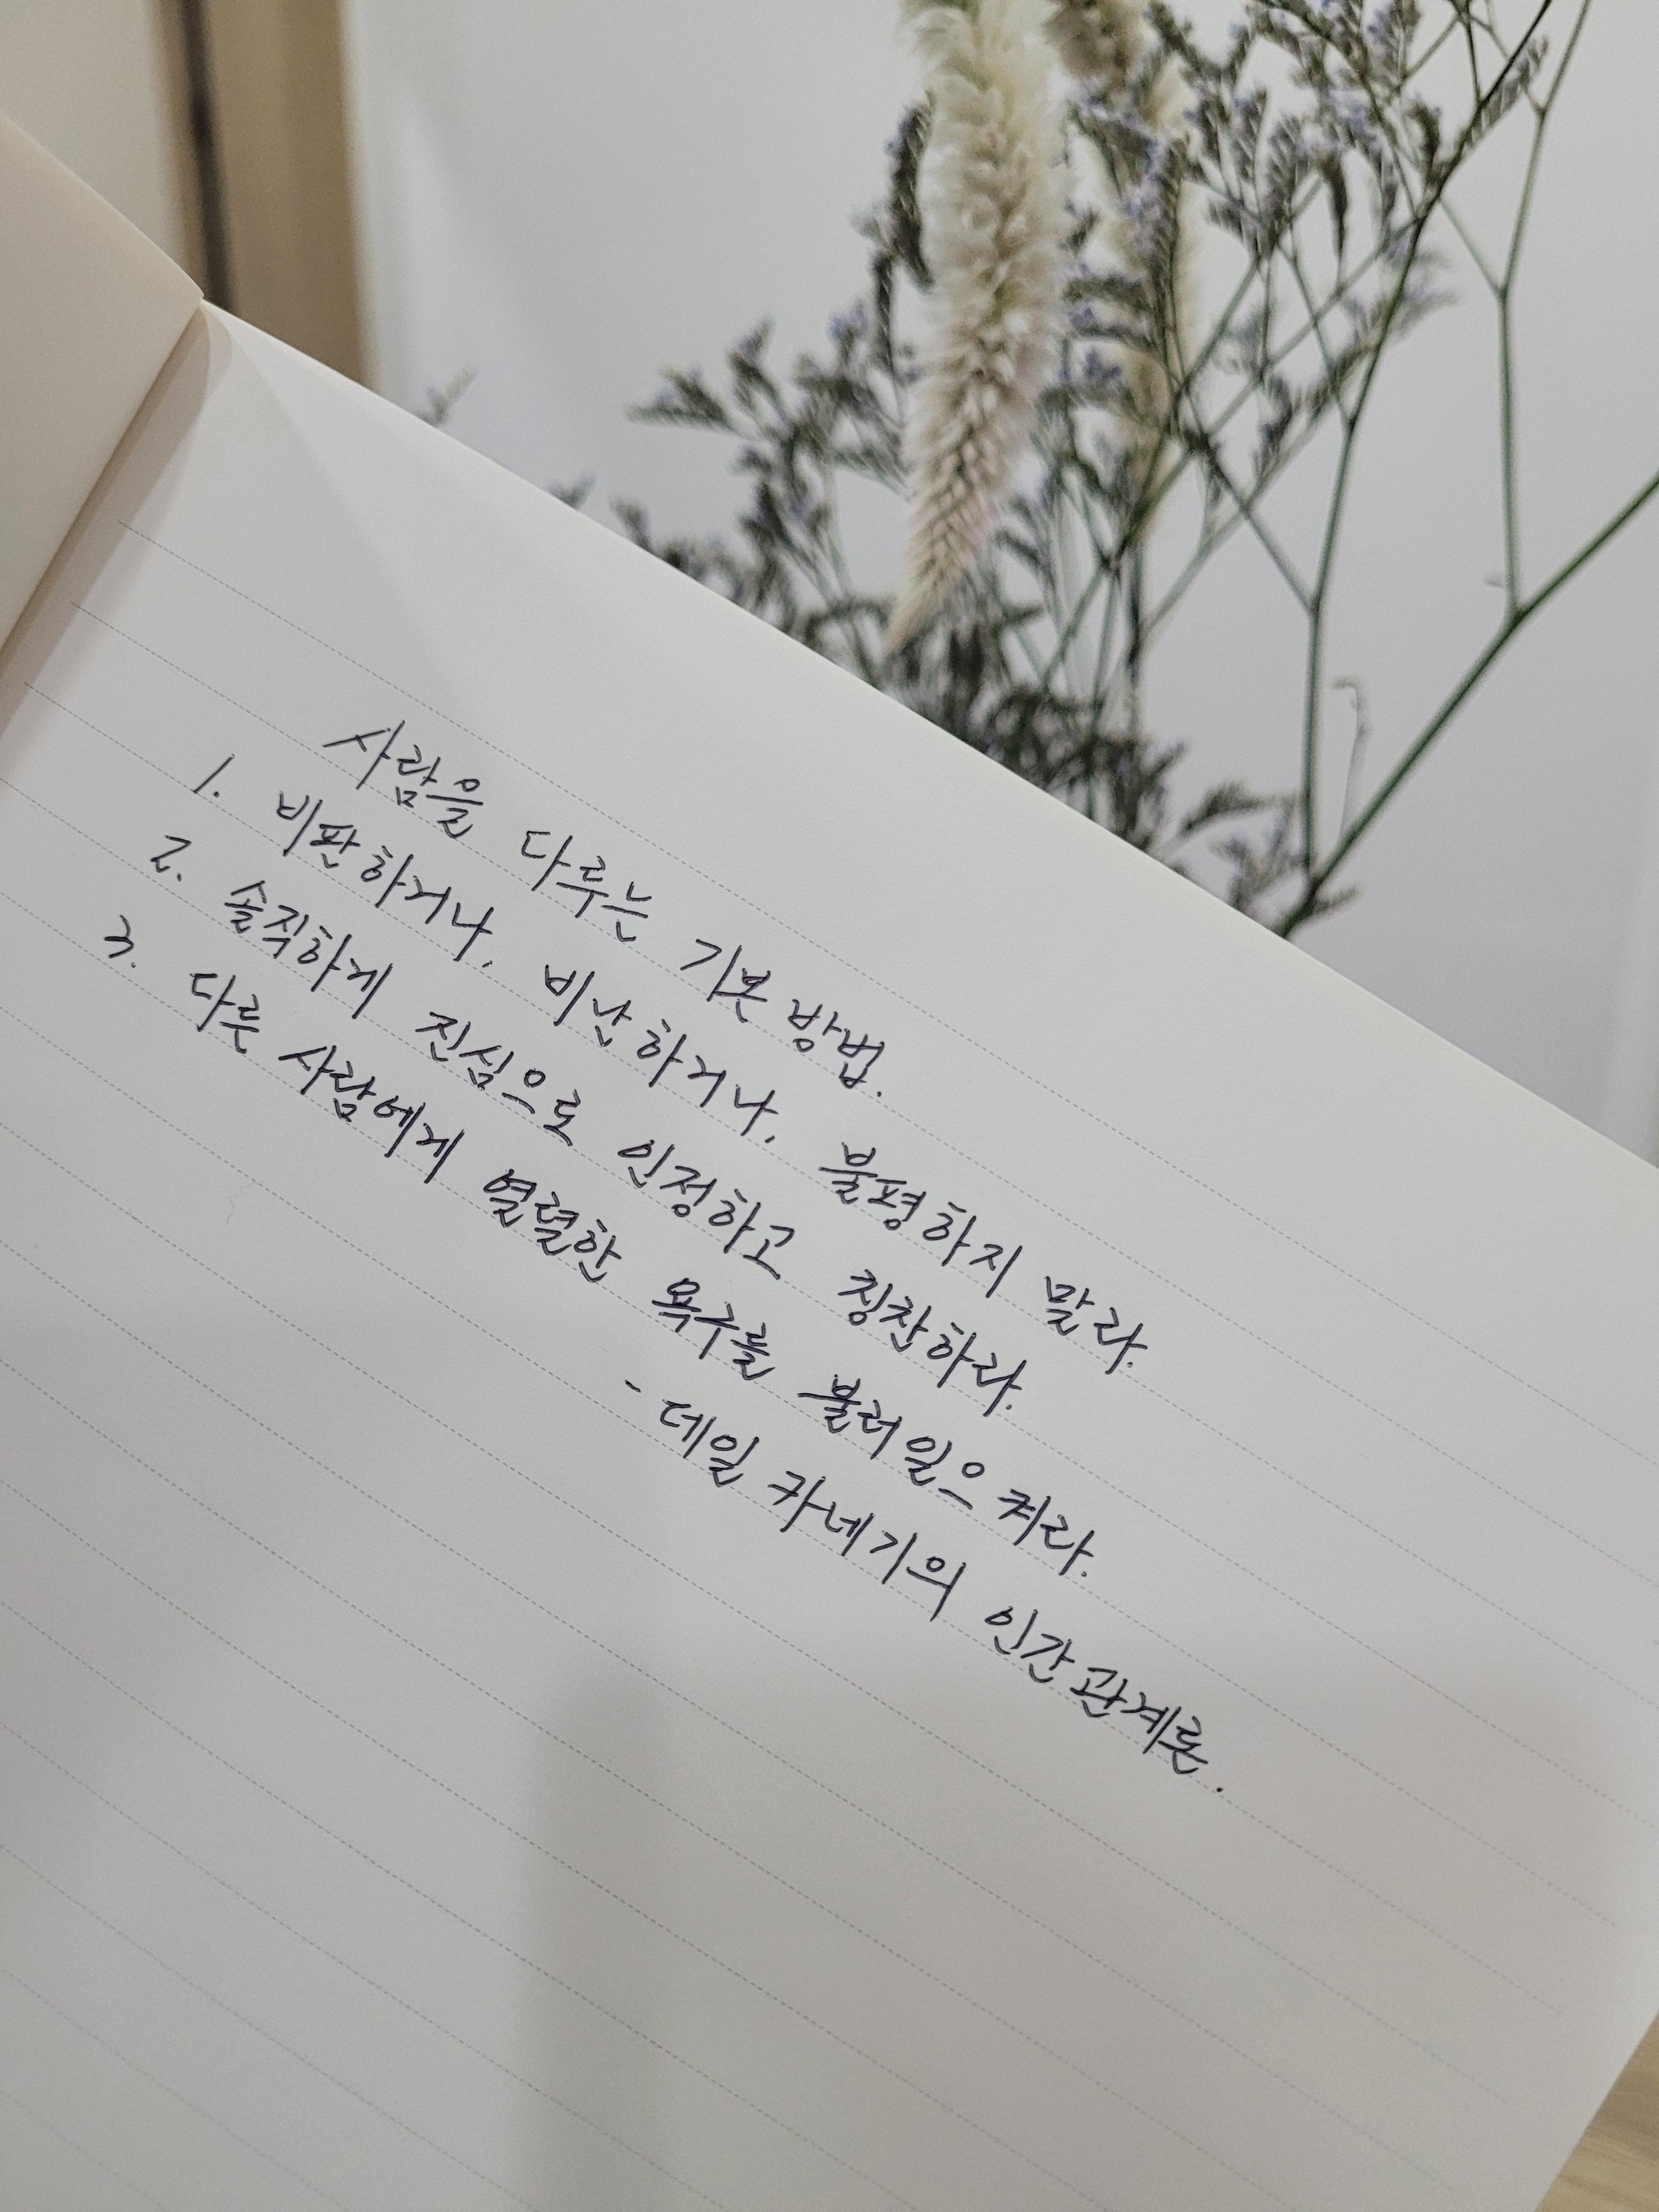 사람을 다루는 기본 방법.
1. 비판하거나, 비난하거나, 불평하지 말라.
2. 솔직하게 진심으로 인정하고 칭찬하라.
3. 다른 사람에게 열렬한 욕구를 불러일으켜라.
- 데일 카네기의 인간관계론.